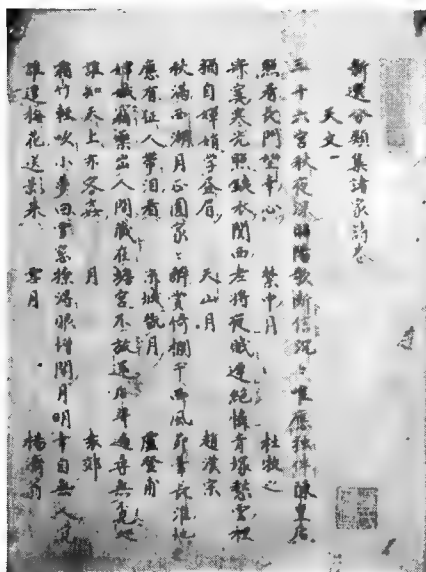 新選分類集諸家詩卷
天文一
三十六宮秋夜深昭陽歌断信沉々唯應獨伴陳皇后
照看長門望幸心 禁中月 杜牧之
寒光照鐵衣關西老将夜眠遲絶憐青塚愁雲裡
獨自嬋娟學画眉 天山月 趙漢宗
秋満西湖月正圓家々醉賞倚欄干西風長淮地
應有征人帶泪看 城翫月 盧登甫
嫦娥竊藥出人間藏在蟾宮不放還后羿遍尋無覓処
誰知天上亦容姦 月 袁郊
竹軽小夢回雪窓眼慵開月明自無人
誰遣梅花送影来 雪月 楊齊翁